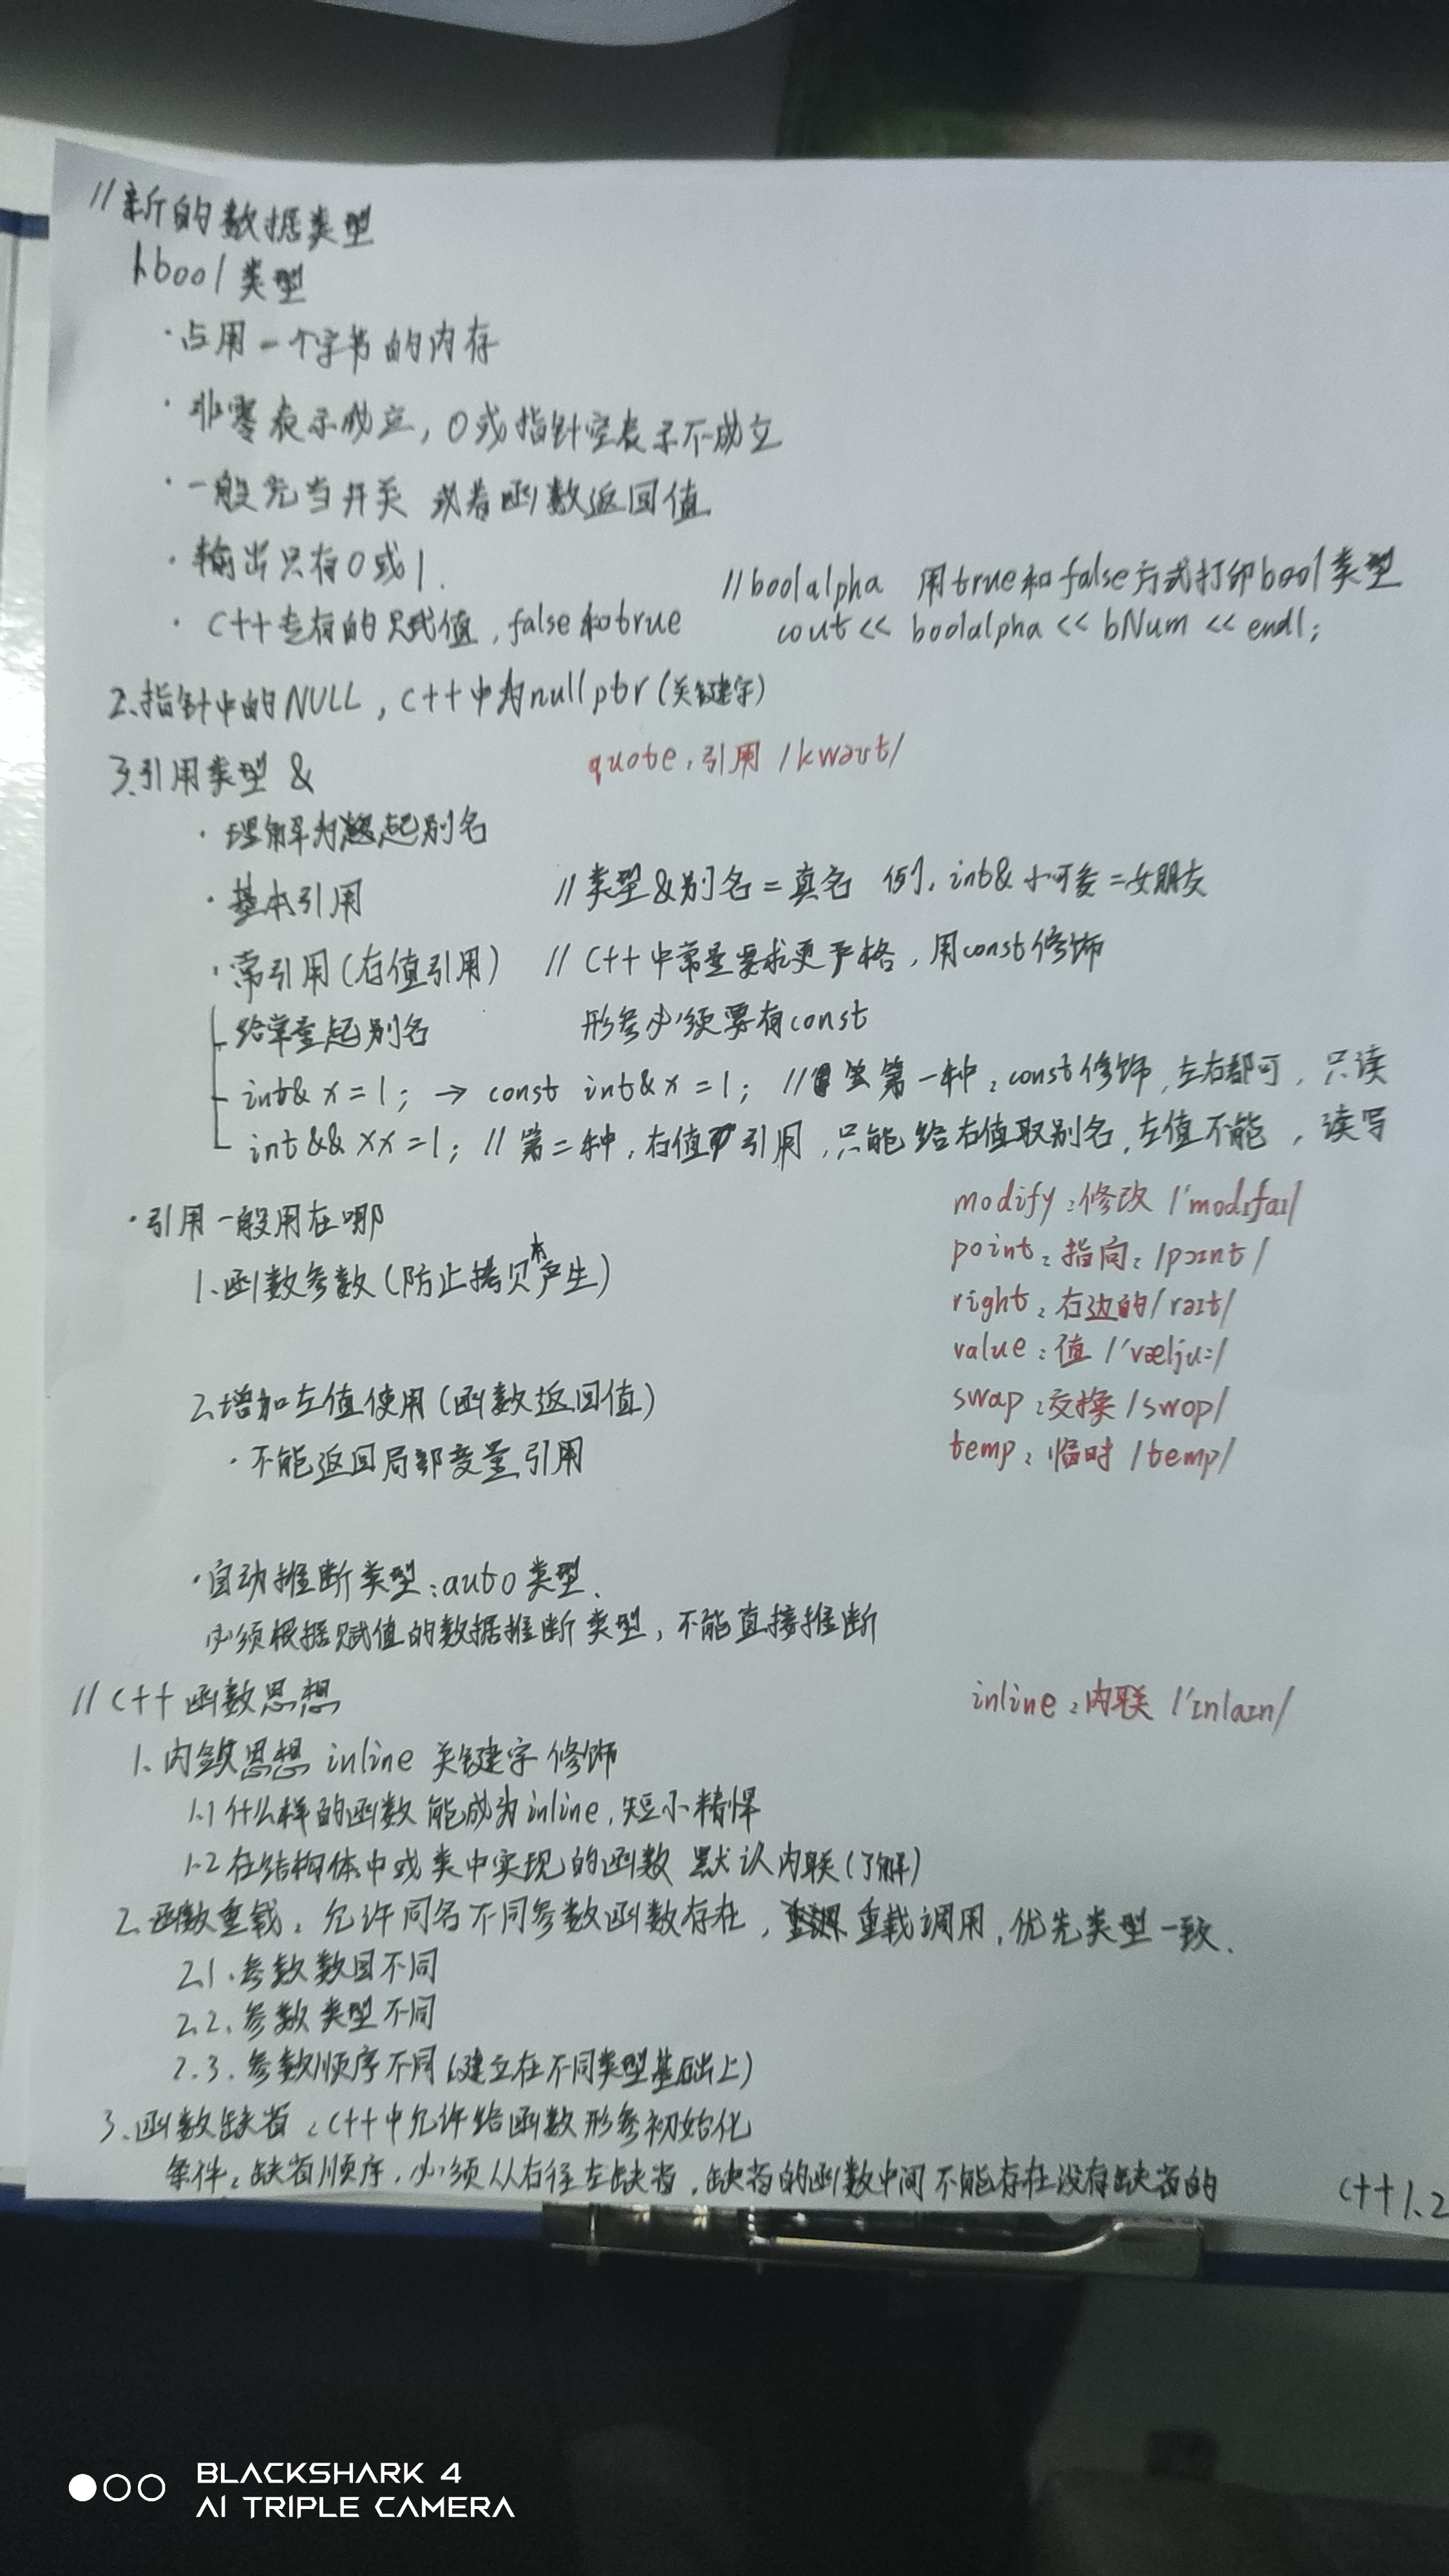 //新的数据类型
1.bool类型
·占用一个字节的内存
·非零表示成立, 0或指针空表示不成立
·一般充当开关 或者函数返回值
·输出只有0或1.
//boolalpha 用true和false方式打印bool类型
·C++专有的赋值, false和true
cout << boolalpha << bNum << endl;
2.指针中的NULL, C++中为nullptr(关键字)
3.引用类型 &
quote:引用 /kwəʊt/
·理解为起别名
·基本引用 //类型&别名=真名 例: int& 小可爱=女朋友
·常引用(右值引用) // C++中常量要求更严格, 用const修饰
给常量起别名 形参必须要有const
int& x=1; → const int& x=1; // 第一种: const修饰,左右都可, 只读
int&& xx=1; // 第二种, 右值引用,只能给右值取别名,左值不能, 读写
·引用一般用在哪
modify:修改 /ˈmɒdɪfaɪ/
point:指向: /pɔɪnt/
1.函数参数(防止拷贝本产生)
right:右边的/raɪt/
value:值 /ˈvælju:/
2.增加左值使用(函数返回值)
swap:交换 /swɒp/
·不能返回局部变量引用
temp:临时 /temp/
·自动推断类型:auto类型.
必须根据赋值的数据推断类型, 不能直接推断
// C++函数思想
inline:内联 /ˈɪnlaɪn/
1.内敛思想 inline 关键字 修饰
1.1 什么样的函数 能成为inline,短小精悍
1.2 在结构体中或类中实现的函数 默认内联(了解)
2.函数重载: 允许同名不同参数函数存在, 重载调用,优先类型一致.
2.1.参数数目不同
2.2.参数类型不同
2.3.参数顺序不同(建立在不同类型基础上)
3.函数缺省:C++中允许给函数形参初始化
条件:缺省顺序,必须从右往左缺省,缺省的函数中间不能存在没有缺省的
C++1.2
BLACKSHARK 4
AI TRIPLE CAMERA